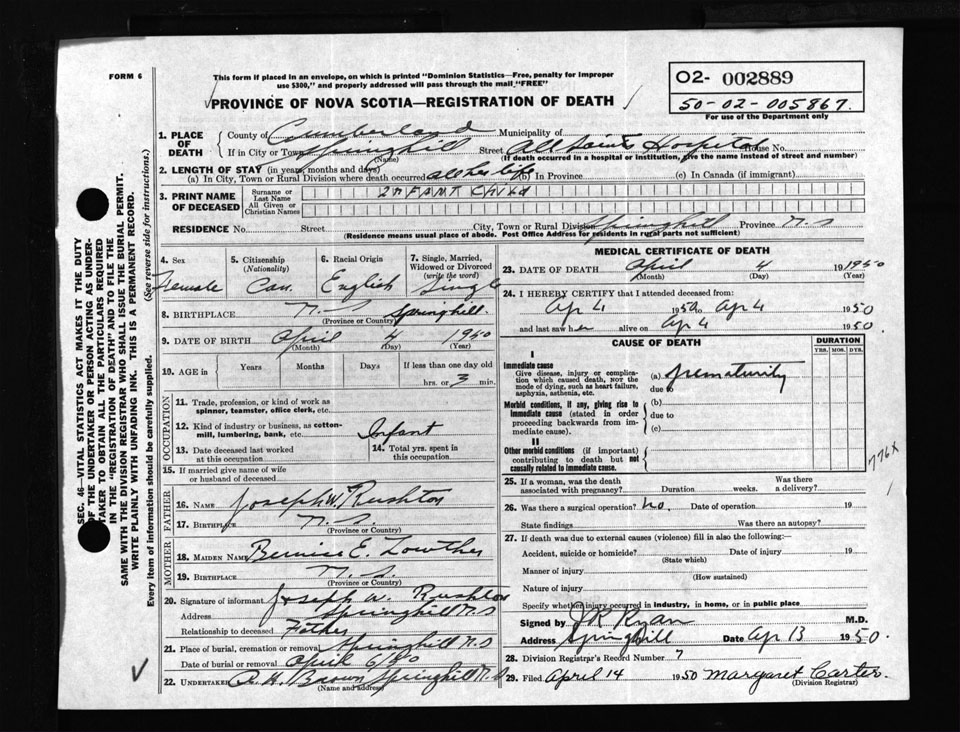 FORM 6
This form if placed in an envelope, on which is printed "Dominion Statistics—Free, penalty for improper
use $300," and properly addressed will pass through the mail "FREE"
PROVINCE OF NOVA SCOTIA—REGISTRATION OF DEATH
O2- 002889
50-02-005867.
For use of the Department only
SEC. 46—VITAL STATISTICS ACT MAKES IT THE DUTY
OF THE UNDERTAKER OR PERSON ACTING AS UNDER-
TAKER TO OBTAIN ALL THE PARTICULARS REQUIRED
IN THE "REGISTRATION OF DEATH" AND TO FILE THE
SAME WITH THE DIVISION REGISTRAR WHO SHALL ISSUE THE BURIAL PERMIT.
WRITE PLAINLY WITH UNFADING INK. THIS IS A PERMANENT RECORD.
Every item of information should be carefully supplied. (See reverse side for instructions.)
1. PLACE OF DEATH
County of Cumberland Municipality of
If in City or Town Springhill Street All Saints Hospital House No.
(Name) (If death occurred in a hospital or institution, give the name instead of street and number)
2. LENGTH OF STAY (in years, months and days)
(a) In City, Town or Rural Division where death occurred all her life (b) In Province (c) In Canada (if immigrant)
3. PRINT NAME OF DECEASED
Surname or Last Name INFANT Child
All Given or Christian Names
RESIDENCE No. Street City, Town or Rural Division Springhill Province N.S
(Residence means usual place of abode. Post Office Address for residents in rural parts not sufficient)
4. Sex Female
5. Citizenship (Nationality) Can.
6. Racial Origin English
7. Single, Married, Widowed or Divorced (write the word) Single
8. BIRTHPLACE N.S Springhill.
(Province or Country)
9. DATE OF BIRTH April 4 1950
(Month) (Day) (Year)
10. AGE in Years Months Days If less than one day old
hrs. or 3 min.
OCCUPATION
11. Trade, profession, or kind of work as
spinner, teamster, office clerk, etc.
12. Kind of industry or business, as cotton-
mill, lumbering, bank, etc. Infant
13. Date deceased last worked
at this occupation
14. Total yrs. spent in
this occupation
15. If married give name of wife
or husband of deceased
FATHER
16. NAME Joseph W. Rushton
17. BIRTHPLACE N.S.
(Province or Country)
MOTHER
18. MAIDEN NAME Bernice E. Lowther
19. BIRTHPLACE N.S.
(Province or Country)
20. Signature of informant Joseph W. Rushton
Address Springhill N.S
Relationship to deceased Father
21. Place of burial, cremation or removal Springhill N.S
Date of burial or removal April 6/50
22. UNDERTAKER A. H. Brown Springhill N.S
(Name and address)
MEDICAL CERTIFICATE OF DEATH
23. DATE OF DEATH April 4 19 1950
(Month) (Day) (Year)
24. I HEREBY CERTIFY that I attended deceased from:
Ap 4 1950 to Ap 4 1950
and last saw her alive on Ap 4 1950.
CAUSE OF DEATH
DURATION
YRS. MOS. DYS.
I
Immediate cause
Give disease, injury or complica-
tion which caused death, NOT the
mode of dying, such as heart failure,
asphyxia, asthenia, etc.
(a) Prematurity
due to
Morbid conditions, if any, giving rise to
immediate cause (stated in order
proceeding backwards from im-
mediate cause).
(b)
due to
(c)
II
Other morbid conditions (if important)
contributing to death but not
causally related to immediate cause.
776X
25. If a woman, was the death
associated with pregnancy? Duration weeks. Was there
a delivery?
26. Was there a surgical operation? no. Date of operation 19
State findings Was there an autopsy?
27. If death was due to external causes (violence) fill in also the following:—
Accident, suicide or homicide? Date of injury 19
(State which)
Manner of injury
(How sustained)
Nature of injury
Specify whether injury occurred in industry, in home, or in public place
Signed by J R Ryan M.D.
Address Springhill Date Ap 13 1950.
28. Division Registrar's Record Number 7
29. Filed April 14 1950 Margaret Carter.
(Division Registrar)